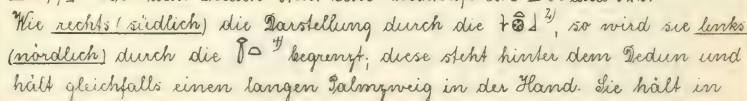 Wie rechts (südlich) die Darstellung durch die 2), so wird sie links
(nördlich) durch die 1) begrenzt; diese steht hinter dem Dedun und
hält gleichfalls einen langen Palmzweig in der Hand. Sie hält in